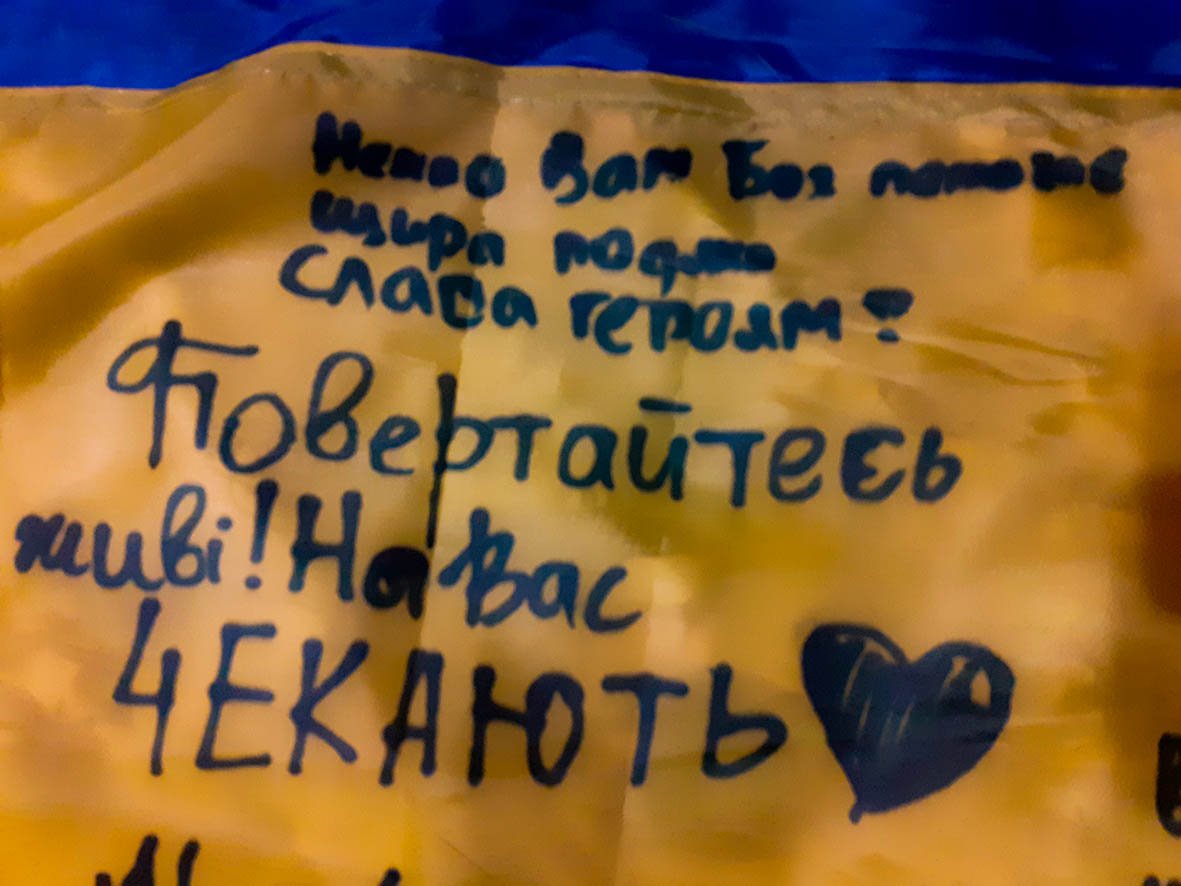 Нехай Вам Бог поможе
щира подяка
Слава героям!
Повертайтеєь
живі! На Вас
ЧЕКАЮТЬ